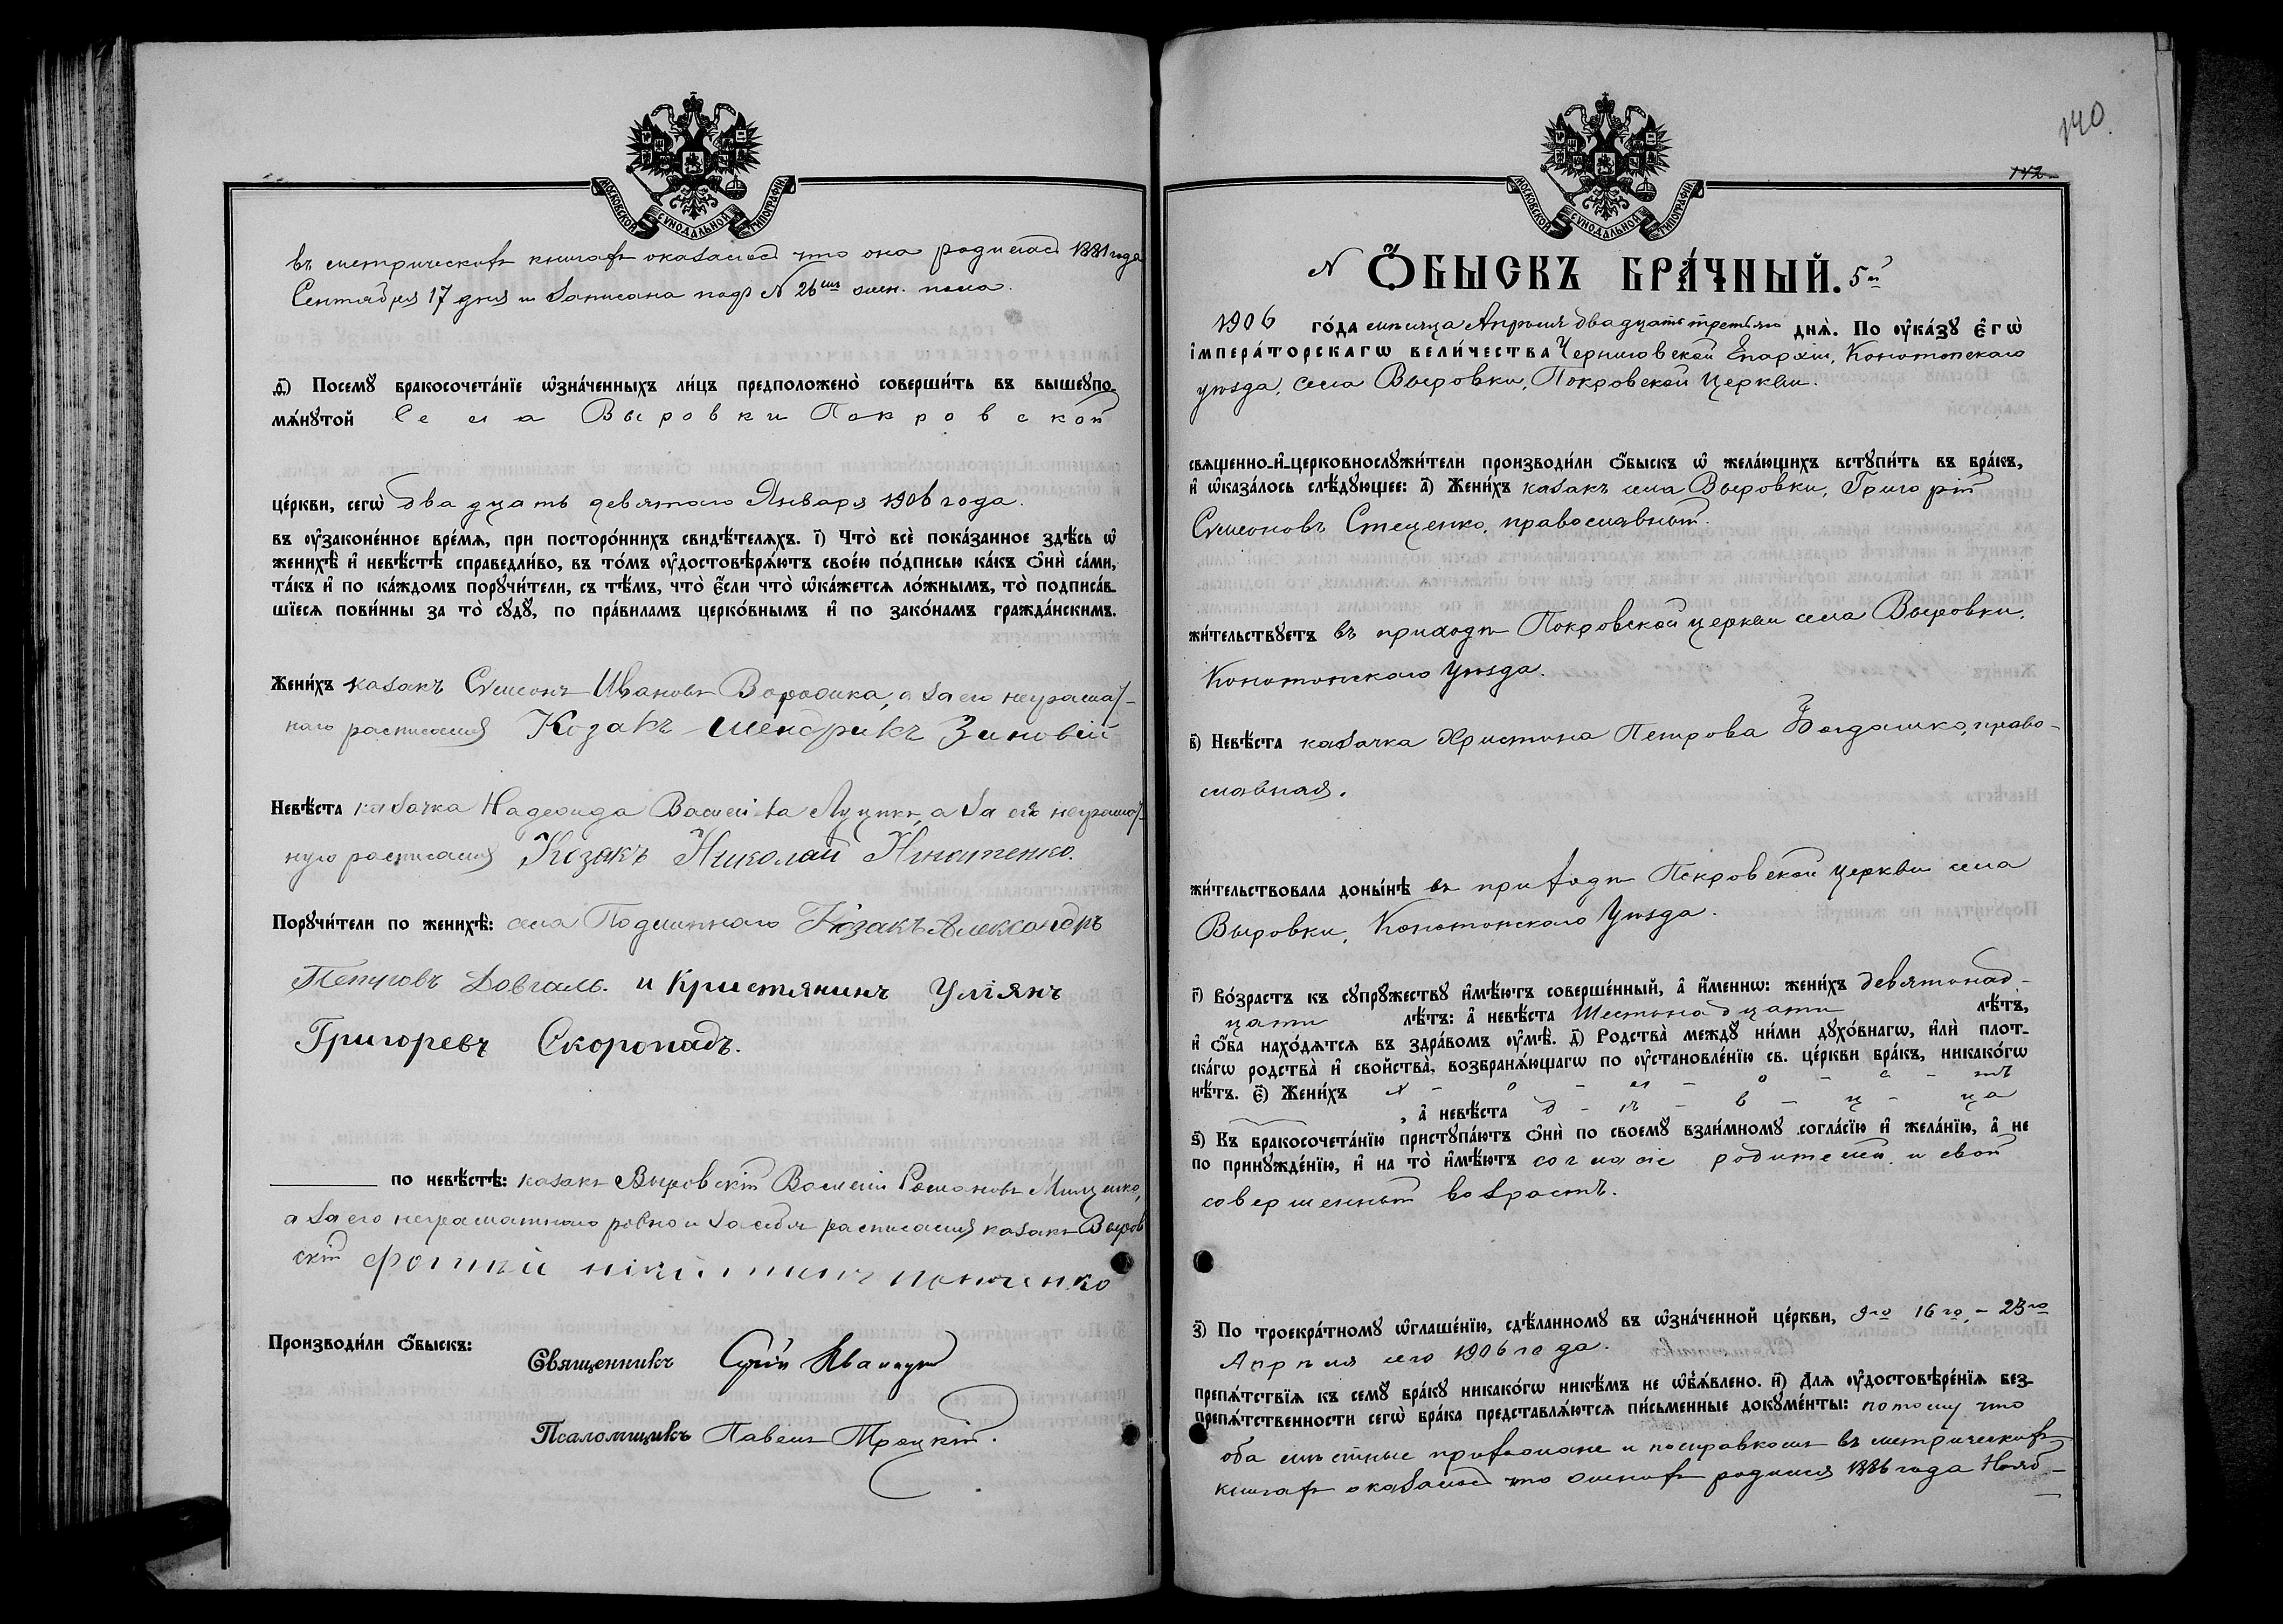 МОСКОВСКОЙ СУНОДАЛЬНОЙ ТИПОГРАФІИ
въ метрическихъ книгахъ оказалось что она родилась 1881 года
Сентября 17 дня и записана подъ N 26 жен. пола.
д҃і) Посемꙋ бракосочета́нїе ѡ҆зна́ченныхъ ли́цъ предположено̀ соверши́ть въ вышеꙋпо-
мѧ́нꙋтой Села Выровки Покровской
це́ркви, сегѡ̀ двадцать девятого Января 1906 года.
въ ᲂу҆законе́нное вре́мѧ, при посторо́ннихъ свидѣ́телѧхъ. і҃) Что̀ всѐ пока́занное здѣ́сь ѡ҆
женихѣ̀ и҆ невѣ́стѣ справедли́во, въ то́мъ ᲂу҆достовѣрѧ́ютъ свое́ю по́дписью ка́къ ѻ҆нѝ са́ми,
та́къ и҆ по ка́ждомъ порꙋчи́тели, съ тѣ́мъ, что̀ є҆́сли что̀ ѡ҆ка́жетсѧ ло́жнымъ, то̀ подписа́в-
шїесѧ пови́нны за то̀ сꙋдꙋ̀, по пра́виламъ церко́внымъ и҆ по зако́намъ гражда́нскимъ.
Жени́хъ казакъ Симеонъ Ивановъ, а за его неграмат-
наго расписался Козакъ Шендрикъ Зиновій
Невѣ́ста казачка Надежда Луцикъ, а за ея неграмат-
ную расписался Козакъ Николай Никитенко.
Порꙋчи́тели по женихѣ̀: села Подлипного Козакъ Александръ
Петровъ Довгаль. и Кристянинъ Улїянъ
Григоревъ Скоропадъ.
по невѣ́стѣ: казакъ Выровскій Василій Романовъ,
а за его неграматнаго ровно и за себя расписался казакъ Выров
скій
Производи́ли ѻ҆́быскъ:
Священникъ
Псаломщикъ Павелъ Троцкій.
140.
142
МОСКОВСКОЙ СУНОДАЛЬНОЙ ТИПОГРАФІИ
N Ѻ҆́БЫСКЪ БРА́ЧНЫЙ. 5й
1906 го́да мѣсяца Апрѣля двадцать третьяго днѧ̀. По ᲂу҆ка́зꙋ є҆гѡ̀
і҆мпера́торскагѡ вели́чества Черниговской Епархіи, Конотопскаго
уѣзда, села Выровки, Покровской церкви.
свѧщенно-и҆-церковнослꙋжи́тели производи́ли ѻ҆́быскъ ѡ҆ жела́ющихъ встꙋпи́ть въ бра́къ,
и҆ ѡ҆каза́лось слѣ́дꙋющее: а҃) Жени́хъ казакъ села Выровки, Григорій
Симеоновъ Стеценко, православный.
жи́тельствꙋетъ въ приходѣ Покровской церкви села Выровки,
Конотопскаго Уѣзда.
в҃) Невѣ́ста казачка Христина Петрова Богдашко, право-
славная.
жи́тельствовала доны́нѣ въ приходѣ Покровской церкви села
Выровки, Конотопскаго Уѣзда.
г҃) Во́зрастъ къ сꙋпрꙋ́жествꙋ и҆мѣ́ютъ соверше́нный, а҆ и҆́меннѡ: жени́хъ девятонад-
цати лѣ́тъ: а҆ невѣ́ста Шестонадцати лѣ́тъ,
и҆ ѻ҆́ба нахо́дѧтсѧ въ здра́вомъ ᲂу҆мѣ̀. д҃) Родства̀ междꙋ̀ ни́ми дꙋхо́внагѡ, и҆лѝ плот-
ска́гѡ родства̀ и҆ свойства̀, возбранѧ́ющагѡ по ᲂу҆становле́нїю св. це́ркви бра́къ, никако́гѡ
нѣ́тъ. є҃) Жени́хъ х - о - л - о - с - тъ
, а҆ невѣ́ста д - ѣ - в - и - ца
ѕ҃) Къ бракосочета́нїю пристꙋпа́ютъ ѻ҆нѝ по своемꙋ̀ взаи́мномꙋ согла́сїю и҆ жела́нїю, а҆ не
по принꙋжде́нїю, и҆ на то̀ и҆мѣ́ютъ согласіе родителей и свой
совершенный возрастъ.
з҃) По троекра́тномꙋ ѡ҆глаше́нїю, сдѣ́ланномꙋ въ ѡ҆зна́ченной це́ркви, 9го 16го, - 23го
Апрѣля сего 1906 года.
препѧ́тствїѧ къ семꙋ̀ бра́кꙋ никако́гѡ никѣ́мъ не ѡ҆б̾ѧ́влено. и҃) Длѧ ᲂу҆достовѣре́нїѧ без-
препѧ́тственности сегѡ̀ бра́ка представлѧ́ютсѧ пи́сьменные докꙋме́нты: потому что
оба мѣстные прихожане и посправкамъ въ метрическихъ
книгахъ оказалось что женихъ родился 1886 года Нояб-